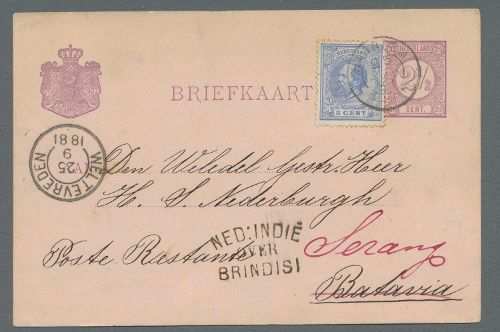 NEDERLAND
NEDERLAND
2½
BRIEFKAART
5 CENT
CENT.
WELTEVREDEN
25
9
1881
Den Weledel Gestr. Heer
H. S. Nederburgh
NED: INDIË
OVER
BRINDISI
Poste Restante
Serang
Batavia